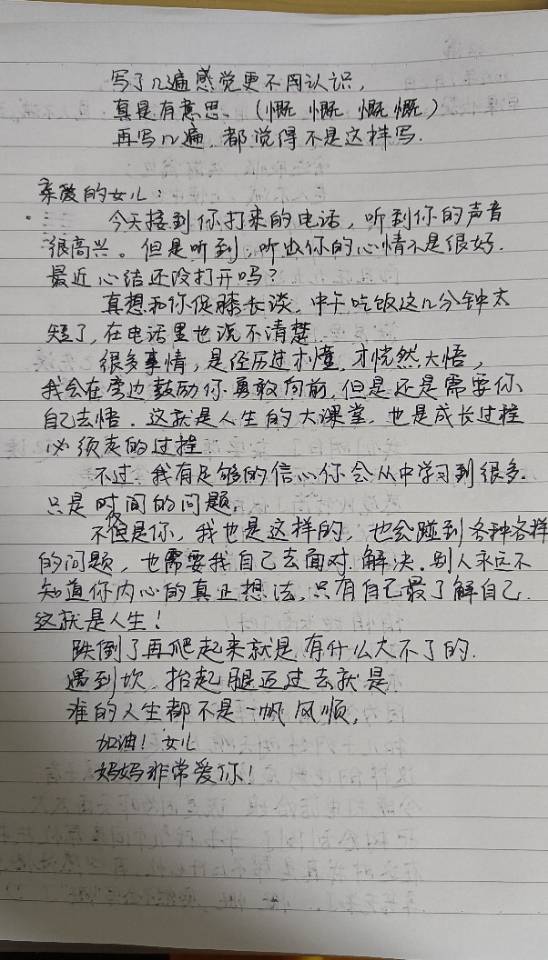 写了几遍感觉更不用认识，
真是有意思。（慨 慨 慨 慨）
再写几遍，都觉得不是这样写．
亲爱的女儿：
今天接到你打来的电话，听到你的声音
很高兴。但是听到，听出你的心情不是很好．
最近心结还没打开吗？
真想和你促膝长谈，中午吃饭这几分钟太
短了，在电话里也说不清楚．
很多事情，是经历过才懂，才恍然大悟，
我会在旁边鼓励你勇敢向前，但是还是需要你
自己去悟．这就是人生的大课堂，也是成长过程
必须走的过程．
不过，我有足够的信心你会从中学习到很多．
只是时间的问题，
不但是你，我也是这样的，也会碰到各种各样
的问题，也需要我自己去面对．解决．别人永远不
知道你内心的真正想法，只有自己最了解自己．
这就是人生！
跌倒了再爬起来就是，有什么大不了的．
遇到坎，抬起腿迈过去就是
谁的人生都不是一帆风顺，
加油！女儿
妈妈非常爱你！